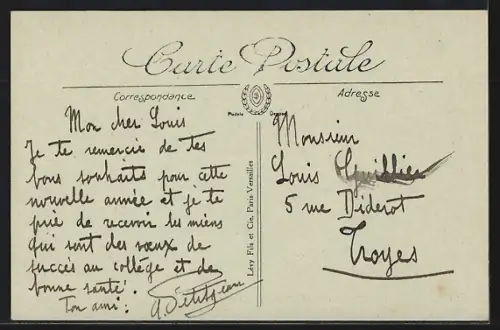 Carte Postale
Correspondance
Adresse
Mon cher Louis
Je te remercie de tes
bons souhaits pour cette
nouvelle année et je te
prie de recevoir les miens
qui sont des vœux de
succès au collège et de
bonne santé.
Ton ami : A. Petitjean
Lévy Fils et Cie, Paris Versailles
Monsieur
Louis
5 rue Diderot
Troyes